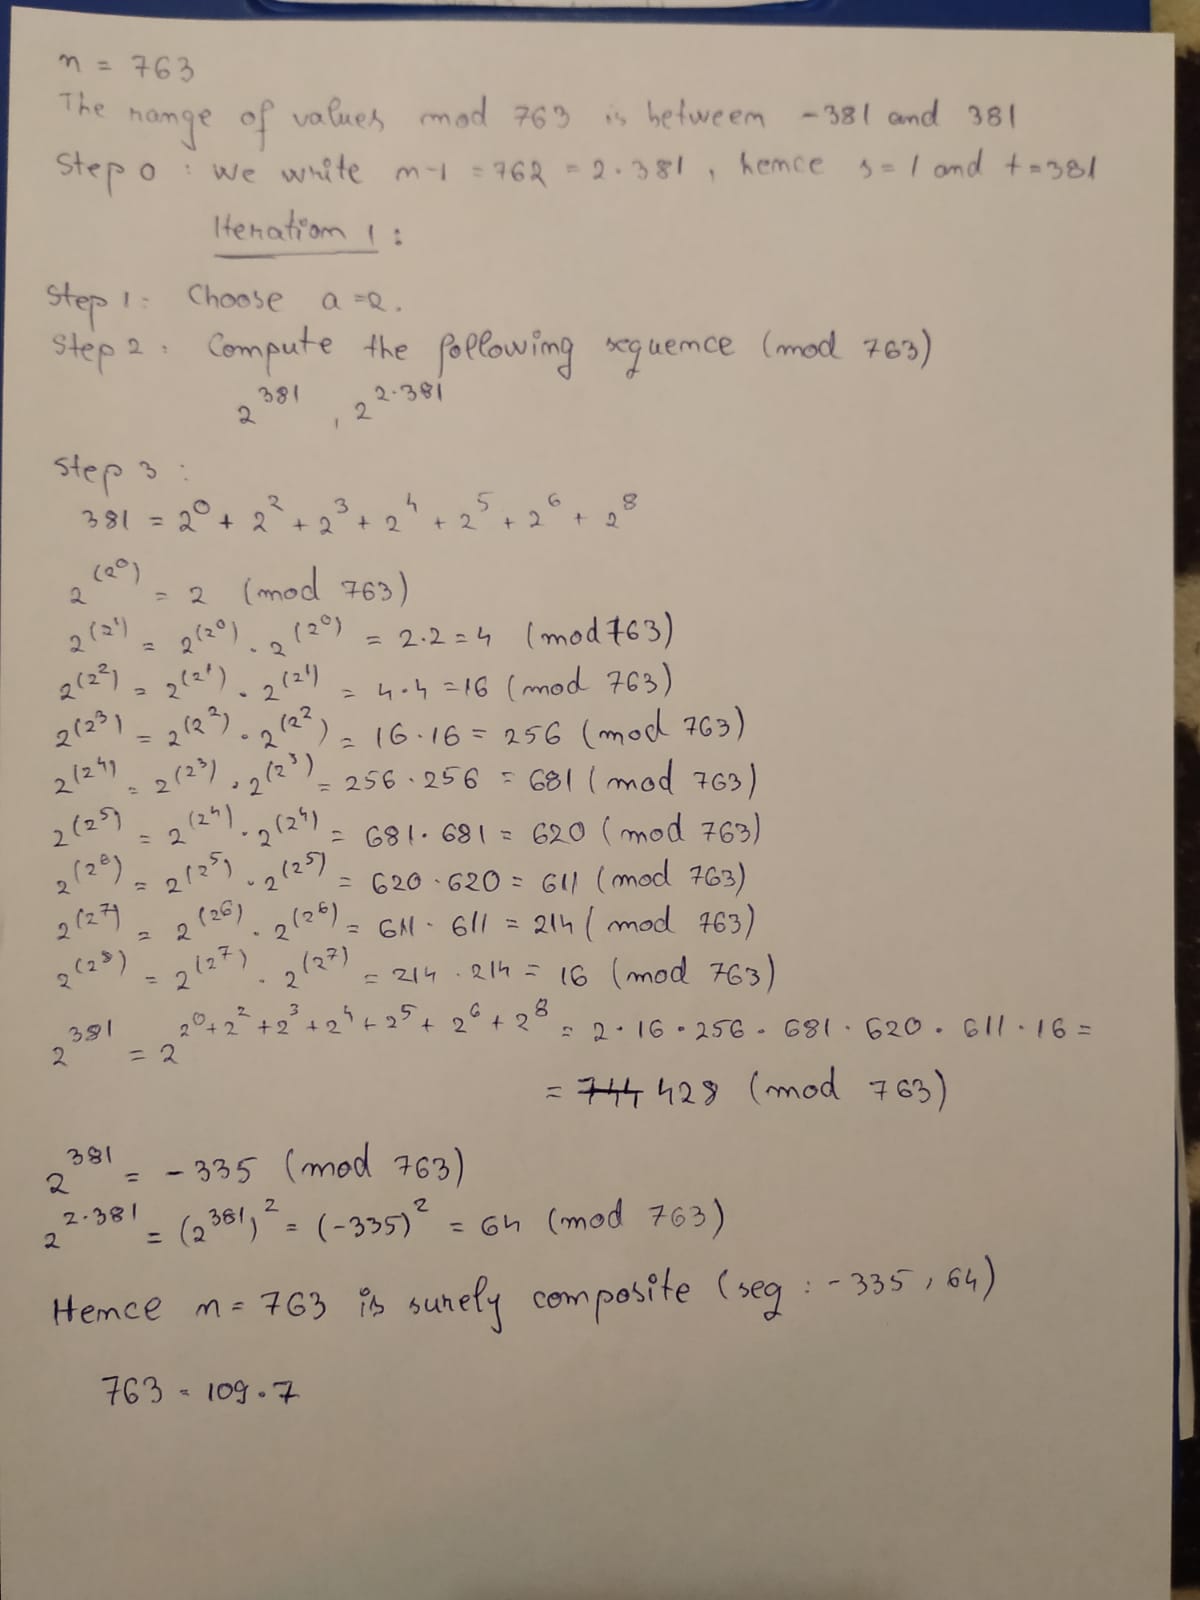 n = 763
The range of values mod 763 is between -381 and 381
Step 0 : We write n-1 = 762 = 2·381, hence s=1 and t=381
Iteration 1:
Step 1: Choose a=2.
Step 2: Compute the following sequence (mod 763)
2^381, 2^2·381
Step 3:
381 = 2^0 + 2^2 + 2^3 + 2^4 + 2^5 + 2^6 + 2^8
2^(2^0) = 2 (mod 763)
2^(2^1) = 2^(2^0) · 2^(2^0) = 2·2 = 4 (mod 763)
2^(2^2) = 2^(2^1) · 2^(2^1) = 4·4 = 16 (mod 763)
2^(2^3) = 2^(2^2) · 2^(2^2) = 16·16 = 256 (mod 763)
2^(2^4) = 2^(2^3) · 2^(2^3) = 256·256 = 681 (mod 763)
2^(2^5) = 2^(2^4) · 2^(2^4) = 681·681 = 620 (mod 763)
2^(2^6) = 2^(2^5) · 2^(2^5) = 620·620 = 611 (mod 763)
2^(2^7) = 2^(2^6) · 2^(2^6) = 611·611 = 214 (mod 763)
2^(2^8) = 2^(2^7) · 2^(2^7) = 214·214 = 16 (mod 763)
2^381 = 2^2^0+2^2+2^3+2^4+2^5+2^6+2^8 = 2·16·256·681·620·611·16 =
= 744 428 (mod 763)
2^381 = -335 (mod 763)
2^2·381 = (2^381)^2 = (-335)^2 = 64 (mod 763)
Hence n = 763 is surely composite (seq: -335, 64)
763 = 109·7